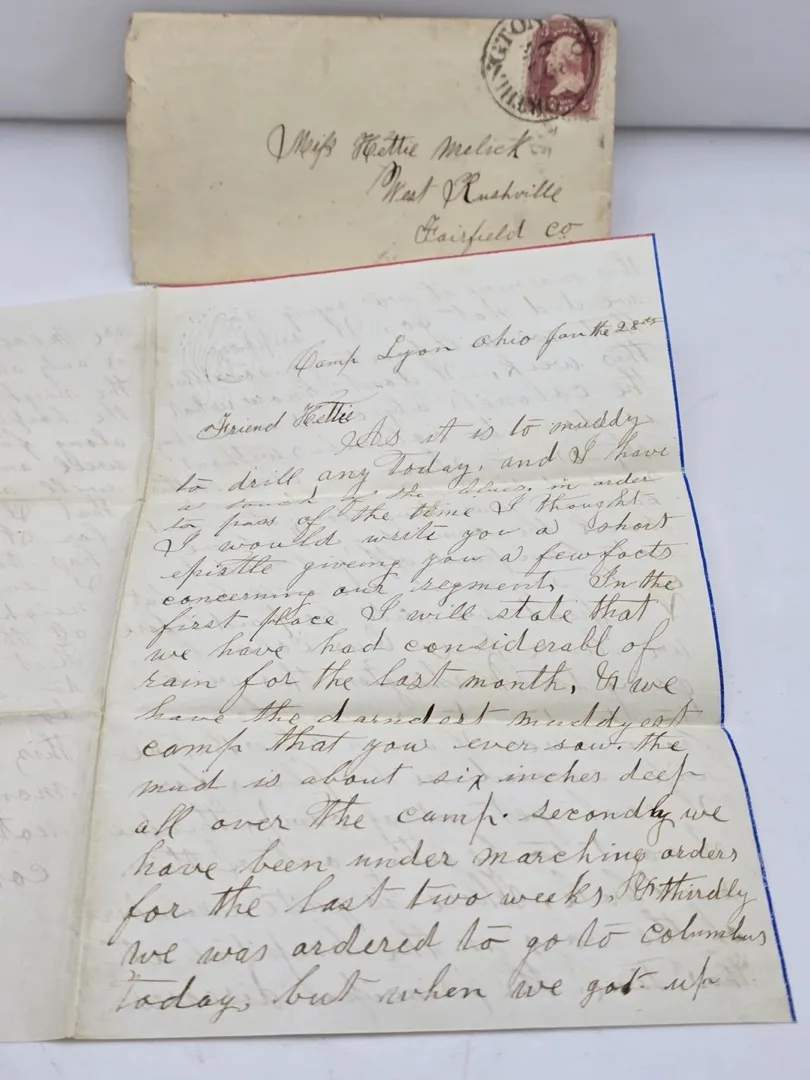 NGTON O
OHIO
Miss Hettie Melick
West Rushville
Fairfield Co
Camp Lyon Ohio Jan the 28th
Friend Hettie
As it is to muddy
to drill any today, and I have
a touch of the blues, in order
to pass of the time I thought
I would write you a short
epistle giveing you a few facts
concerning our regment, In the
first place I will state that
we have had considerabl of
rain for the last month, & we
have the darndest muddyest
camp that you ever saw. the
mud is about six inches deep
all over the camp. secondly we
have been under marching orders
for the last two weeks, & thirdly
we was ordered to go to columbus
today, but when we got up